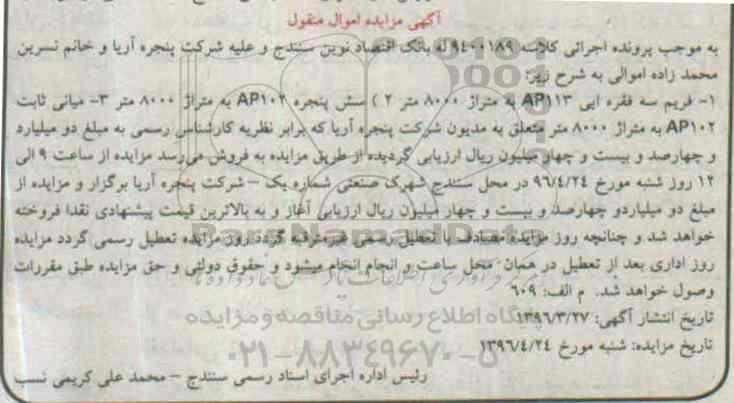 آگهی مزایده اموال منقول
به موجب پرونده اجرائی کلاسه ۹۴۰۰۱۸۹ له بانک اقتصاد نوین سنندج و علیه شرکت پنجره آریا و خانم نسرین
محمد زاده اموالی به شرح زیر:
۱- فریم سه فقره ایی AP۱۱۳ به متراژ ۸۰۰۰ متر ۲ ) سش پنجره AP۱۰۲ به متراژ ۸۰۰۰ متر ۳- میانی ثابت
AP۱۰۲ به متراژ ۸۰۰۰ متر متعلق به مدیون شرکت پنجره آریا که برابر نظریه کارشناس رسمی به مبلغ دو میلیارد
و چهارصد و بیست و چهار میلیون ریال ارزیابی گردیده از طریق مزایده به فروش می‌رسد مزایده از ساعت ۹ الی
۱۲ روز شنبه مورخ ۹۶/۴/۲۴ در محل سنندج شهرک صنعتی شماره یک – شرکت پنجره آریا برگزار و مزایده از
مبلغ دو میلیاردو چهارصد و بیست و چهار میلیون ریال ارزیابی آغاز و به بالاترین قیمت پیشنهادی نقدا فروخته
خواهد شد و چنانچه روز مزایده مصادف با تعطیل رسمی غیرمترقبه گردد روز مزایده تعطیل رسمی گردد مزایده
روز اداری بعد از تعطیل در همان محل ساعت و انجام انجام میشود و حقوق دولتی و حق مزایده طبق مقررات
وصول خواهد شد. م الف: ۶۰۹
تاریخ انتشار آگهی: ۱۳۹۶/۳/۲۷
تاریخ مزایده: شنبه مورخ ۱۳۹۶/۴/۲۴
رئیس اداره اجرای اسناد رسمی سنندج – محمد علی کریمی نسب
ParsNamadData
پایگاه اطلاع رسانی مناقصه و مزایده
۰۲۱-۸۸۳۴۹۶۷۰-۵